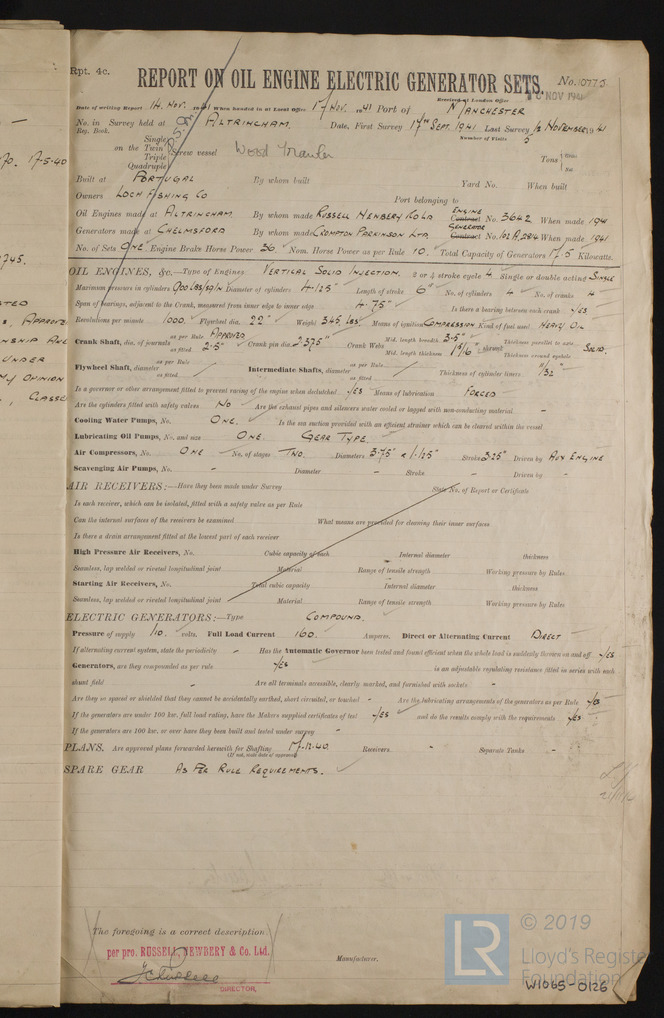 Rpt. 4c.
REPORT ON OIL ENGINE ELECTRIC GENERATOR SETS.
No. 10773
NOV 1941
Received at London Office
Date of writing Report 14. NOV. 1941 When handed in at Local Office 17 NOV. 1941 Port of MANCHESTER
No. in Survey held at ALTRINCHAM. Date, First Survey 17TH SEPT. 1941. Last Survey 12 NOVEMBER 1941
Reg. Book. Number of Visits 5
Single
on the Twin
Triple
Quadruple
Screw vessel Wood Trawler Tons
Built at PORTUGAL By whom built Yard No. When built
Owners LOCH FISHING CO Port belonging to
Oil Engines made at ALTRINCHAM. By whom made RUSSELL NEWBERY & CO LD. ENGINE Contract No. 3642 When made 1941
Generators made at CHELMSFORD By whom made CROMPTON PARKINSON LTD. GENERATOR Contract No. When made 1941
No. of Sets ONE Engine Brake Horse Power 36 Nom. Horse Power as per Rule 10. Total Capacity of Generators 17.5 Kilowatts.
OIL ENGINES, &c.—Type of Engines VERTICAL SOLID INJECTION. 2 or 4 stroke cycle 4 Single or double acting SINGLE
Maximum pressure in cylinders 900 LBS/SQ/IN Diameter of cylinders 4.125" Length of stroke 6" No. of cylinders 4 No. of cranks 4
Span of bearings, adjacent to the Crank, measured from inner edge to inner edge 4.75" Is there a bearing between each crank YES
Revolutions per minute 1000. Flywheel dia. 22" Weight 345 LBS. Means of ignition COMPRESSION Kind of fuel used HEAVY OIL
Crank Shaft, dia. of journals as per Rule APPROVED as fitted 2.5" Crank pin dia. 2.375" Crank Webs Mid. length breadth 3.5" Mid. length thickness 1 9/16" shrunk Thickness parallel to axis Thickness around eyehole SOLID.
Flywheel Shaft, diameter as per Rule as fitted Intermediate Shafts, diameter as per Rule as fitted Thickness of cylinder liners 11/32"
Is a governor or other arrangement fitted to prevent racing of the engine when declutched YES Means of lubrication FORCED
Are the cylinders fitted with safety valves NO Are the exhaust pipes and silencers water cooled or lagged with non-conducting material -
Cooling Water Pumps, No. ONE. Is the sea suction provided with an efficient strainer which can be cleared within the vessel
Lubricating Oil Pumps, No. and size ONE. GEAR TYPE.
Air Compressors, No. ONE No. of stages TWO. Diameters 3.75" & 1.125" Stroke 3.25" Driven by AUX ENGINE
Scavenging Air Pumps, No. - Diameter - Stroke - Driven by -
AIR RECEIVERS:—Have they been made under Survey State No. of Report or Certificate
Is each receiver, which can be isolated, fitted with a safety valve as per Rule
Can the internal surfaces of the receivers be examined What means are provided for cleaning their inner surfaces
Is there a drain arrangement fitted at the lowest part of each receiver
High Pressure Air Receivers, No. Cubic capacity of each Internal diameter thickness
Seamless, lap welded or riveted longitudinal joint Material Range of tensile strength Working pressure by Rules
Starting Air Receivers, No. Total cubic capacity Internal diameter thickness
Seamless, lap welded or riveted longitudinal joint Material Range of tensile strength Working pressure by Rules
ELECTRIC GENERATORS:—Type COMPOUND.
Pressure of supply 110. volts. Full Load Current 160. Amperes. Direct or Alternating Current DIRECT
If alternating current system, state the periodicity - Has the Automatic Governor been tested and found efficient when the whole load is suddenly thrown on and off YES
Generators, are they compounded as per rule YES is an adjustable regulating resistance fitted in series with each
shunt field - Are all terminals accessible, clearly marked, and furnished with sockets -
Are they so spaced or shielded that they cannot be accidentally earthed, short circuited, or touched - Are the lubricating arrangements of the generators as per Rule YES
If the generators are under 100 kw. full load rating, have the Makers supplied certificates of test YES and do the results comply with the requirements YES
If the generators are 100 kw. or over have they been built and tested under survey -
PLANS. Are approved plans forwarded herewith for Shafting 17.12.40. Receivers - Separate Tanks -
(If not, state date of approval)
SPARE GEAR AS PER RULE REQUIREMENTS.
The foregoing is a correct description.
per pro. RUSSELL, NEWBERY & Co. Ltd.
DIRECTOR.
Manufacturer.
LR
© 2019
Lloyd's Registe
Foundation
W1065-0126
70. 17.5.40
745.
STED
S, APPROVE
NSHIP AND
UNDER
MY OPINION
, CLASSE